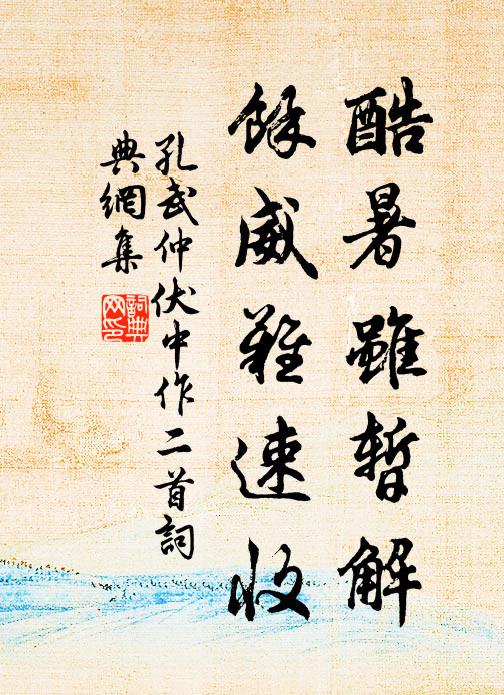 酷暑雖暫解
餘威難速收
孔武仲伏中作二首詞
典網集
詞典網印